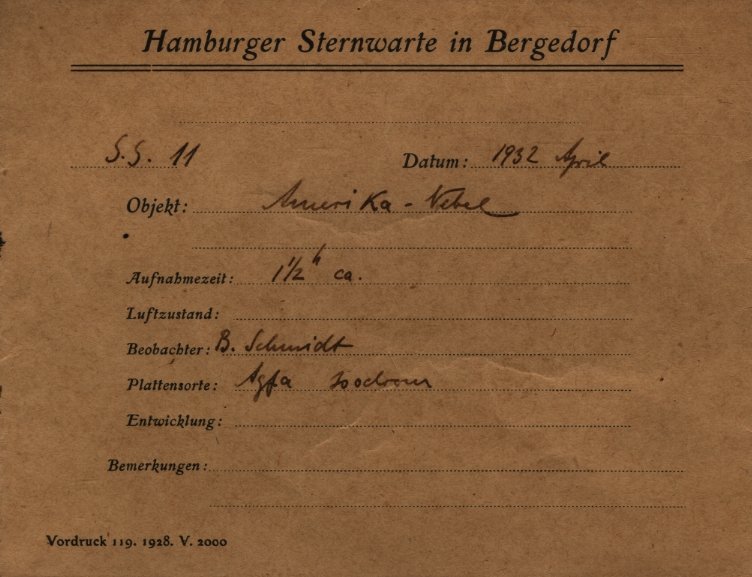 Hamburger Sternwarte in Bergedorf
S.S. 11 Datum: 1932 April
Objekt: Amerika - Nebel
Aufnahmezeit: 1½ h ca.
Luftzustand:
Beobachter: B. Schmidt
Plattensorte: Agfa Isochrom
Entwicklung:
Bemerkungen:
Vordruck 119. 1928. V. 2000